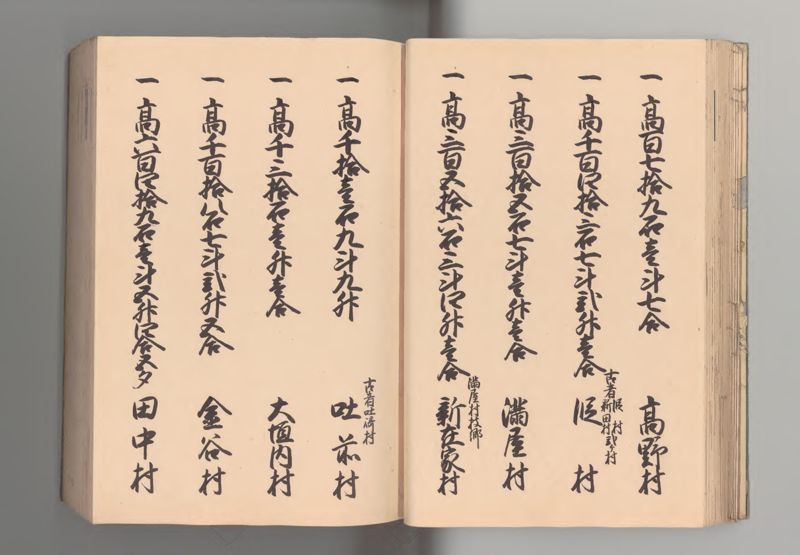 一高百七拾九石壱斗七合 高野村
一高千百四拾三石七斗弐升壱合 古者 村 新田村弐村 村
一高三百拾五石七斗壱升壱合 満屋村
一高三百五拾六石三斗四升壱合 満屋村枝郷 新在家村
一高千拾壱石九斗九升 古者吐崎村 吐前村
一高千三拾石壱升壱合 大垣内村
一高千百拾八石七斗弐升五合 金谷村
一高六百四拾九石壱斗五升四合五夕 田中村